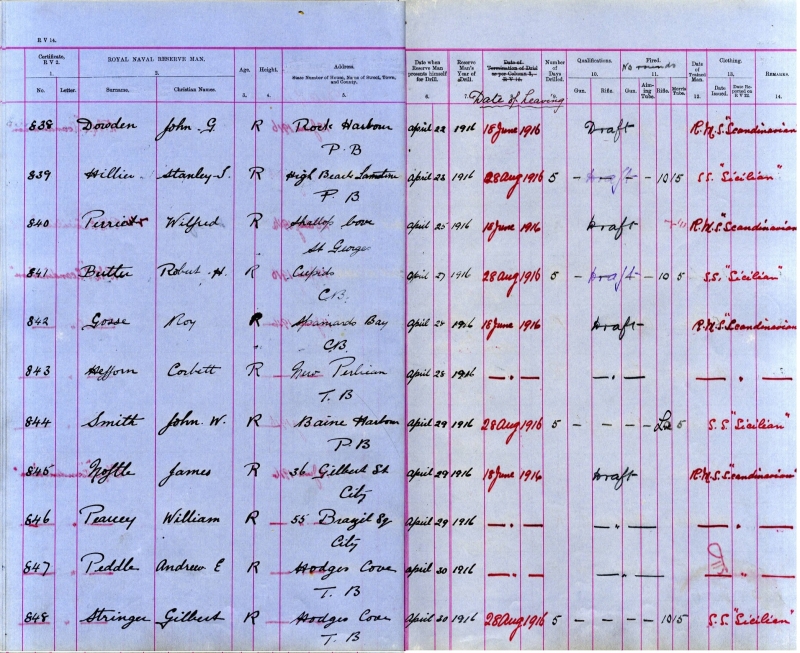 R V 14.
Certificate, R V 2. ROYAL NAVAL RESERVE MAN. Age. Height. Address. Date when Reserve Man presents himself for Drill. Reserve Man's Year of Drill. Date of Termination of Drill as per Column 3, R V 14. Number of Days Drilled. Qualifications. Fired. No rounds Date of Trained Men. Clothing. REMARKS.
State Number of House, Name of Street, Town, and County.
1. 2. 3. 4. 5. 6. 9. 10. 11. 12. 13. 14.
No. Letter. Surname. Christian Names. Gun. Rifle. Gun. Aiming Tube. Rifle. Morris Tube. Date Issued. Date Reported on R V 22.
Date of Leaving
838 Dowden John G R Rock Harbour April 22 1916 18 June 1916 Draft R.M.S. "Scandinavian
P. B
839 Hillier Stanley S. R High Beach Lamaline April 23 1916 28 Aug 1916 5 - Draft - 10 15 S.S. "Sicilian"
P. B
840 Wilfred R Shallop Cove April 25 1916 18 June 1916 Draft R.M.S. "Scandinavian
St Georges
841 Butler Robert H. R Cupids April 27 1916 28 Aug 1916 5 - Draft - 10 5 S.S. "Sicilian"
C.B.
842 Gosse Roy R Spaniards Bay April 24 1916 18 June 1916 Draft R.M.S. "Scandinavian
C.B
843 Heffern Corbett R New Perlican April 28 1916 — " — — " — — " —
T. B
844 Smith John. W. R Baine Harbour April 29 1916 28 Aug 1916 5 - - - - 5 S.S. "Sicilian"
P B
845 Noftle James R 36 Gilbert St April 29 1916 18 June 1916 Draft R.M.S. "Scandinavian"
City
846 Peavcey William R 55 Brazil Sq April 29 1916 — " — — " — — " —
City
847 Peddle Andrew E R Hodges Cove April 30 1916 — " — — " — — " —
T. B
848 Stringer Gilbert R Hodges Cove April 30 1916 28 Aug 1916 5 - - - - 10 15 S.S. "Sicilian"
T. B